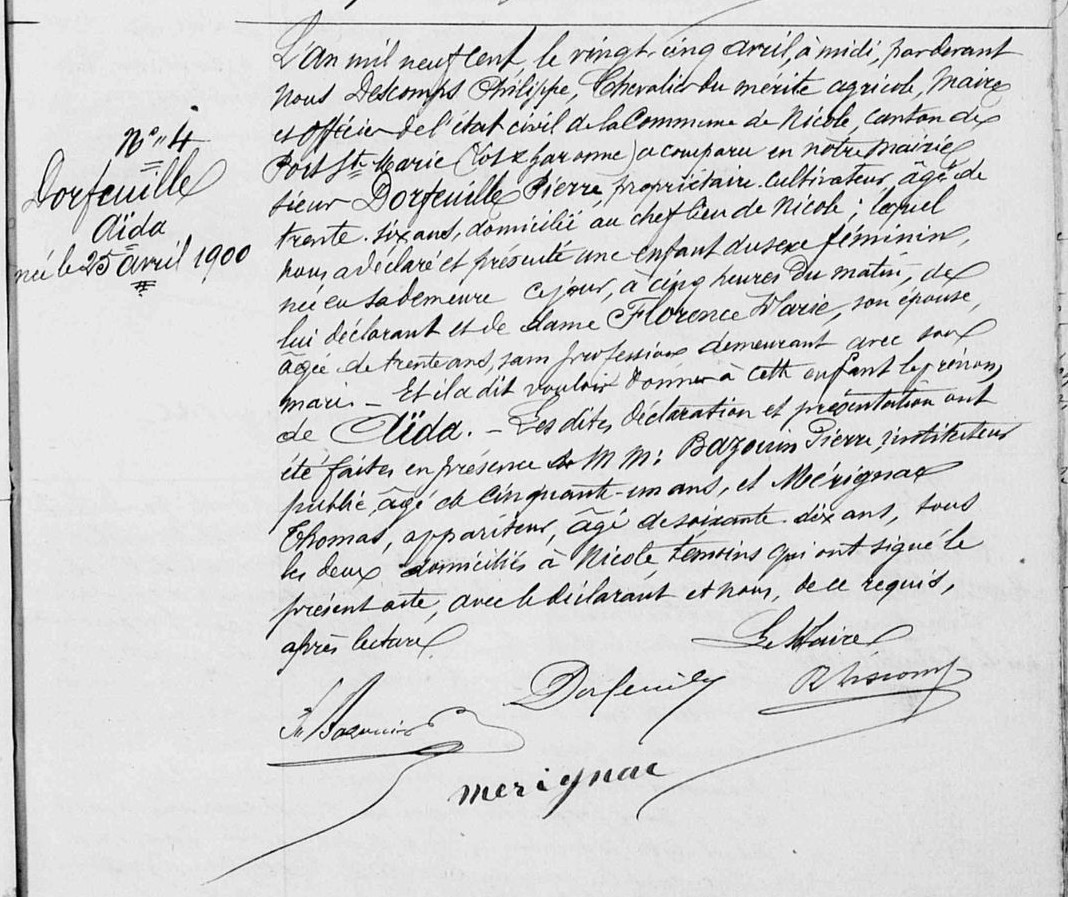 N° 4
Dorfeuille
Aïda
née le 25 avril 1900
L'An mil neuf cent, le vingt-cinq avril, à midi, par devant
nous Descomps Philippe, Chevalier du mérite agricole, Maire
et Officier de l'état civil de la Commune de Nicole, canton de
Port Ste Marie (Lot & Garonne) a comparu en notre mairie
sieur Dorfeuille Pierre, propriétaire-cultivateur, âgé de
trente-six ans, domicilié au chef lieu de Nicole; lequel
nous a déclaré et présenté une enfant du sexe féminin,
née en sa demeure ce jour, à cinq heures du matin, de
lui déclarant et de dame Florence Marie, son épouse,
âgée de trente ans, sans profession demeurant avec son
mari. — Et il a dit vouloir donner à cette enfant le prénom
de Aïda. — Les dites déclaration et présentation ont
été faites en présence de M M: Bazouin Pierre, instituteur
public, âgé de cinquante-un ans, et Mérignac
Thomas, appariteur, âgé de soixante-dix ans, tous
les deux domiciliés à Nicole témoins qui ont signé le
présent acte, avec le déclarant et nous, de ce requis,
après lecture.
Le Maire
Dorfeuille
merignac